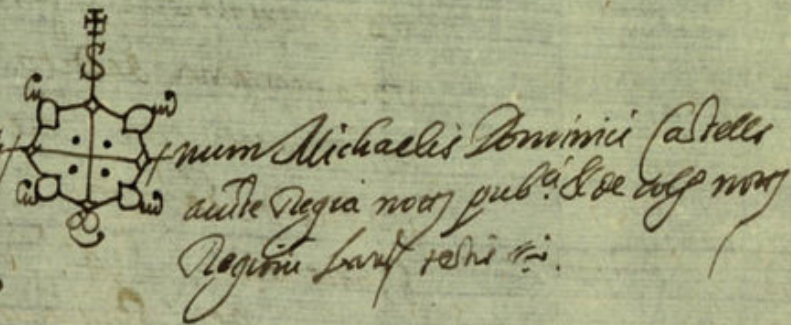 S
num Michaelis Dominici Castells
aucte Regia nott pub.ci & de colo nott
Regiorū barñ testis